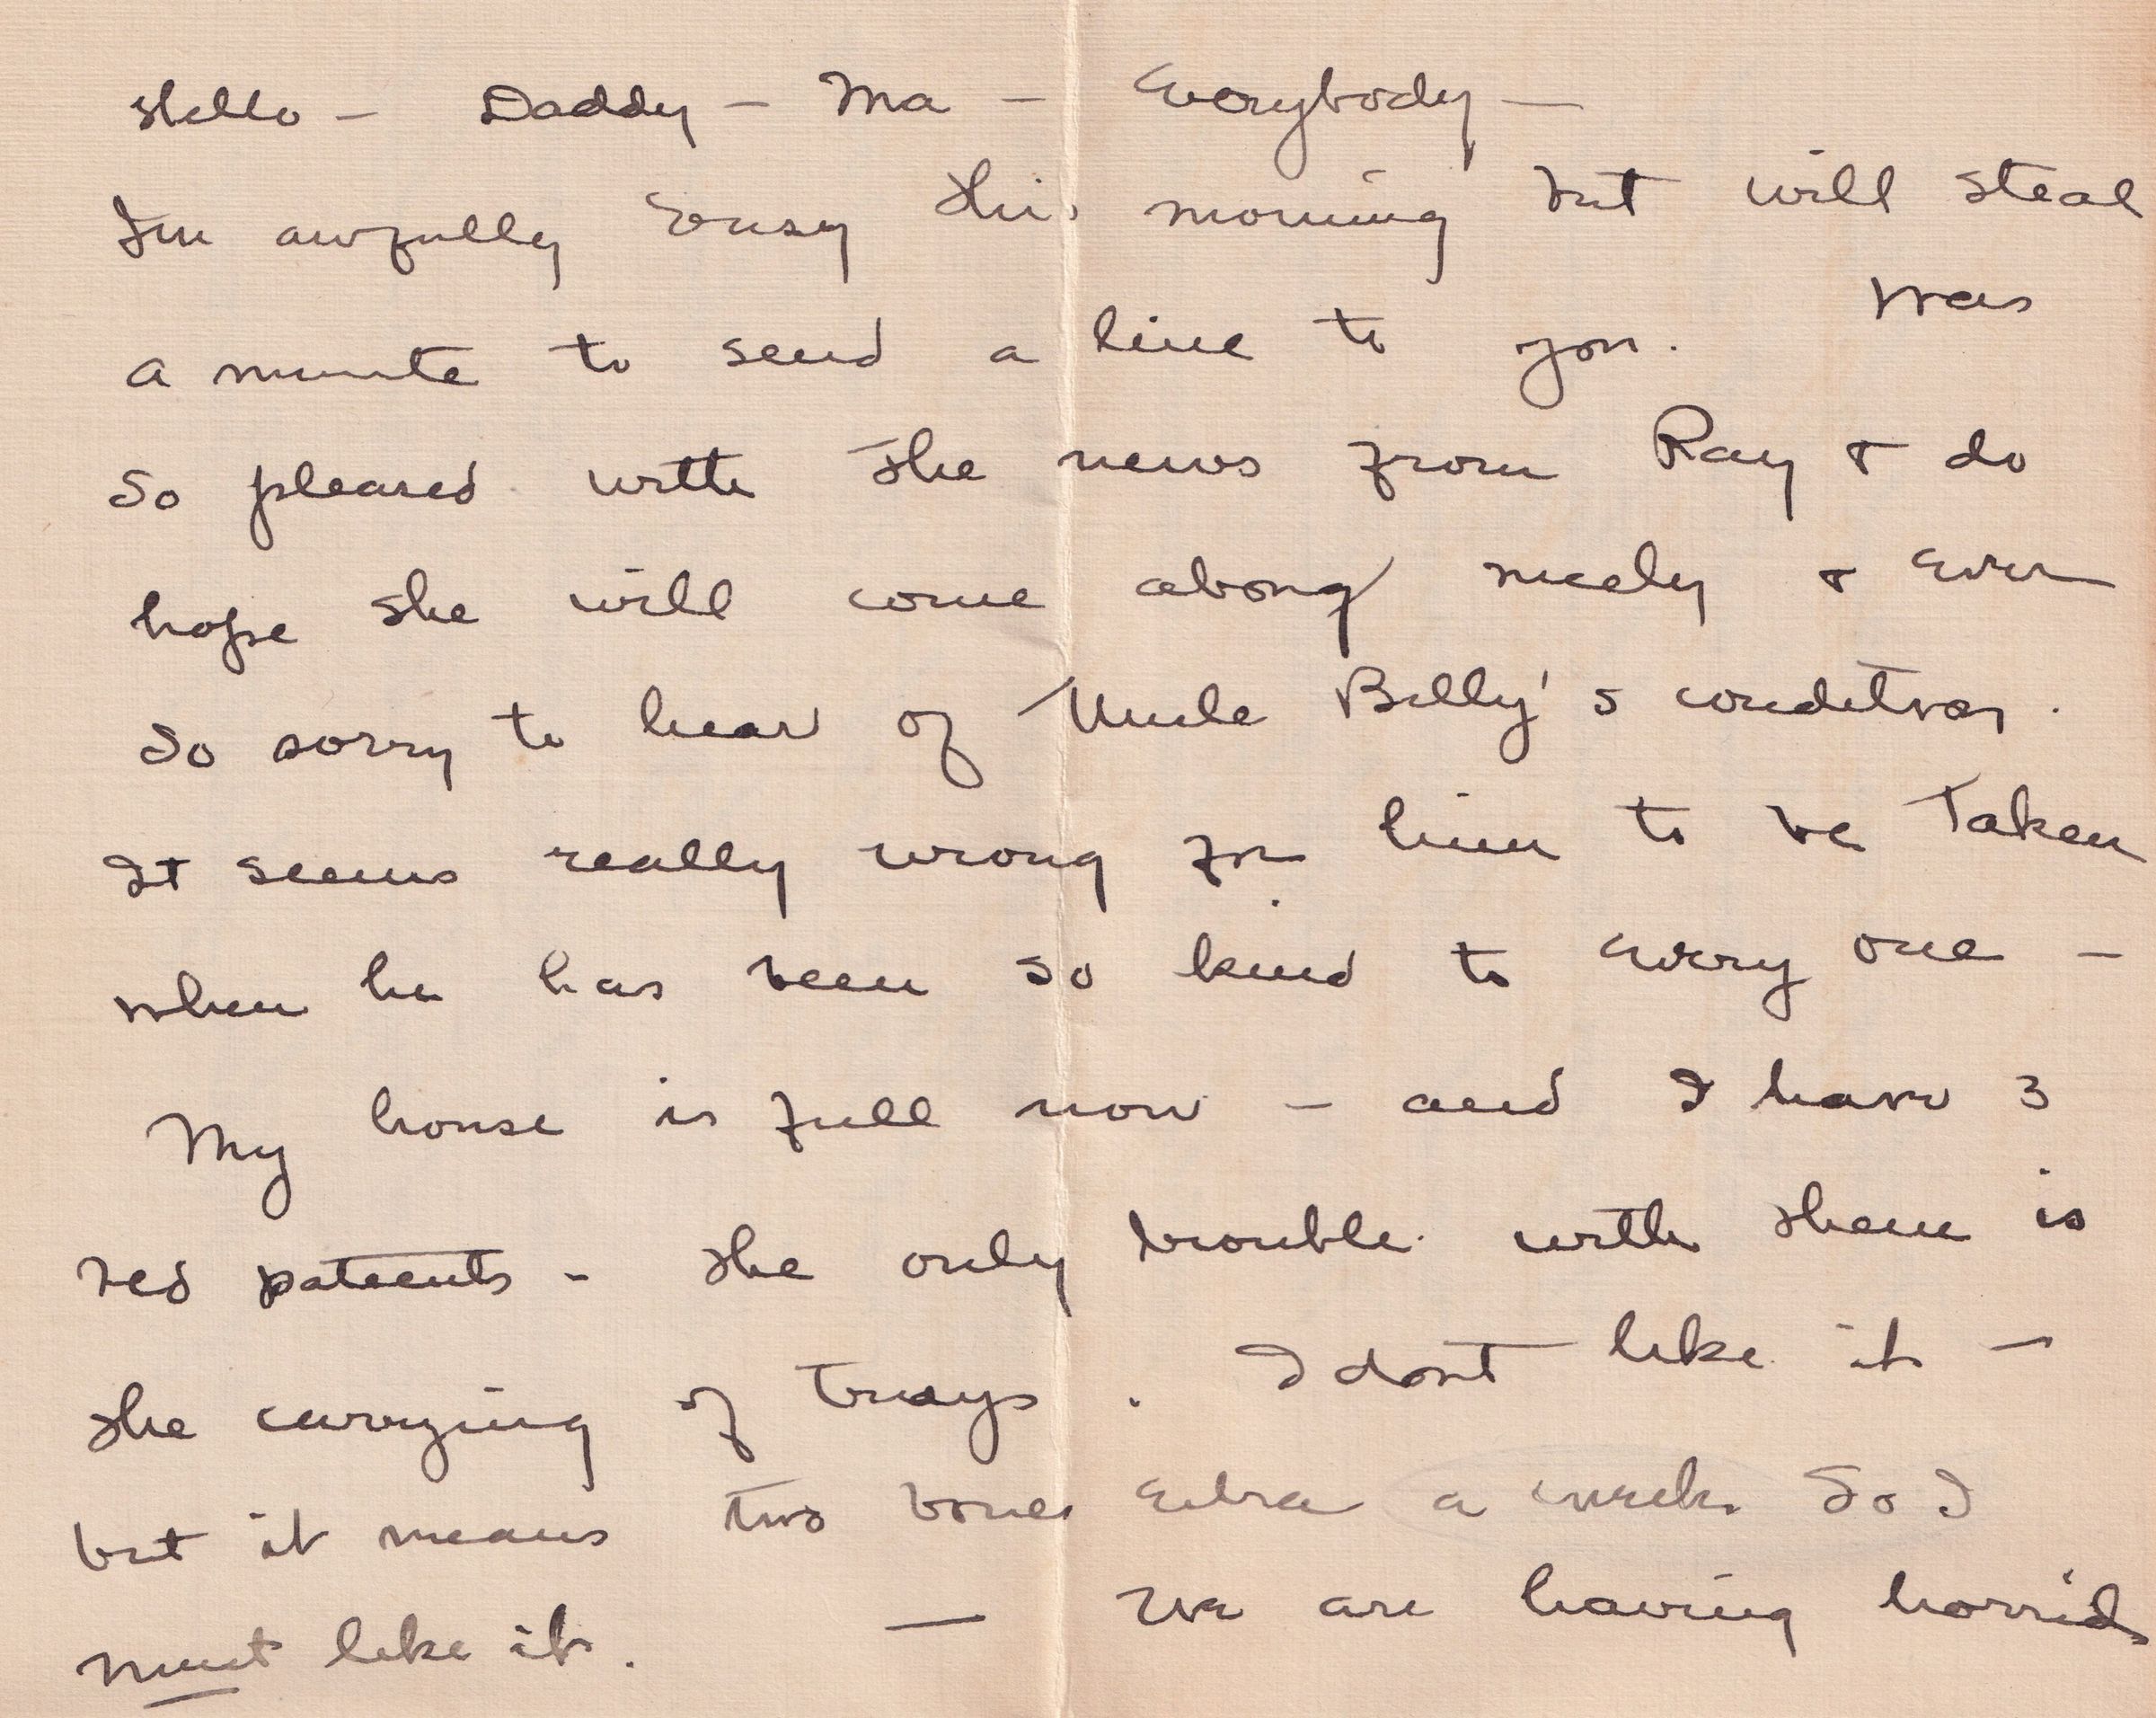 Hello - Daddy - Ma - Everybody -
I'm awfully busy this morning but will steal
a minute to send a line to you. Was
so pleased with the news from Ray & do
hope she will come along nicely & ever
so sorry to hear of Uncle Billy's condition.
It seems really wrong for him to be taken
when he has been so kind to every one -
My house is full now - and I have 3
bed patients - the only trouble with them is
the carrying of trays. I dont like it -
but it means two bones extra a week So I
must like it. — We are having horrid